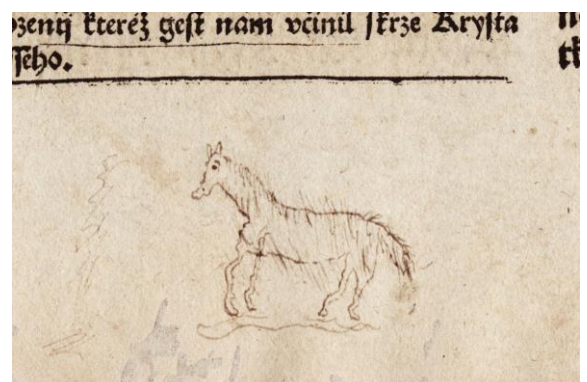 ozenij kteréž gest nam včinil skrze Krysta
sseho.